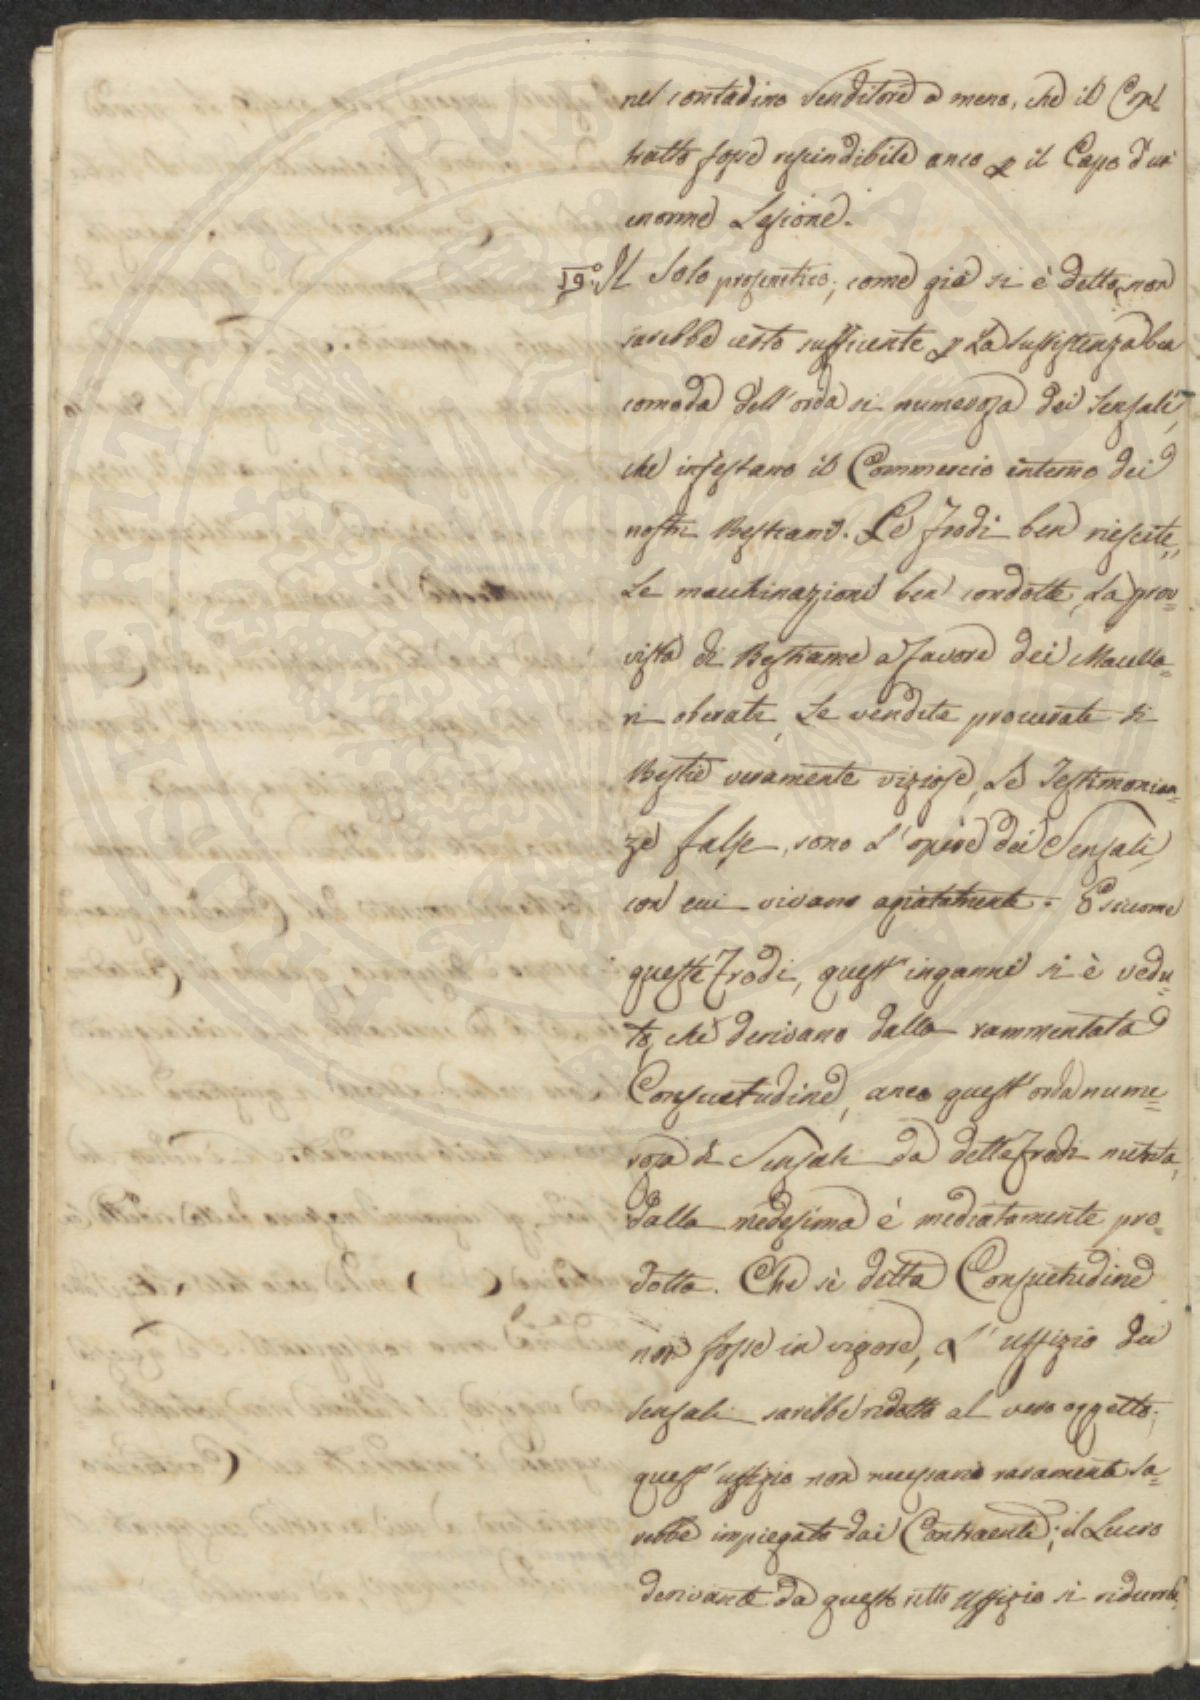 nel contadino venditore a meno, che il Con-
tratto fosse rescindibile anco p il Capo d'un
enorme Lesione.
19.° Il solo prosenetico, come già si è detto, non
sarebbe certo sufficente p La sussistenza ben
comoda dell'orda si numerosa dei Sensali,
che infestano il Commercio interno dei
nostri Bestiami. Le frodi ben riescite,
Le macchinazioni ben condotte, La prov=
vista di Bestiame a favore dei Macella=
ri oberati, Le vendite procurate di
Bestie veramente viziose, Le Testimonian=
ze false, sono L'opere dei Sensali,
con cui vivano agiatamente. E siccome
queste Frodi, quest'inganni si è vedu=
to, che derivano dalla rammentata
Consuetudine, anco quest'orda nume=
rosa di Sensali da dette frodi nutrita,
dalla medesima è mediatamente pro=
dotta. Che se detta Consuetudine
non fosse in vigore, L'uffizio dei
Sensali sarebbe ridotto al vero oggetto;
quest'uffizio non necessario raramente sa=
rebbe impiegato dai Contraenti; il Lucro
derivante da questo retto Uffizio si ridurreb,